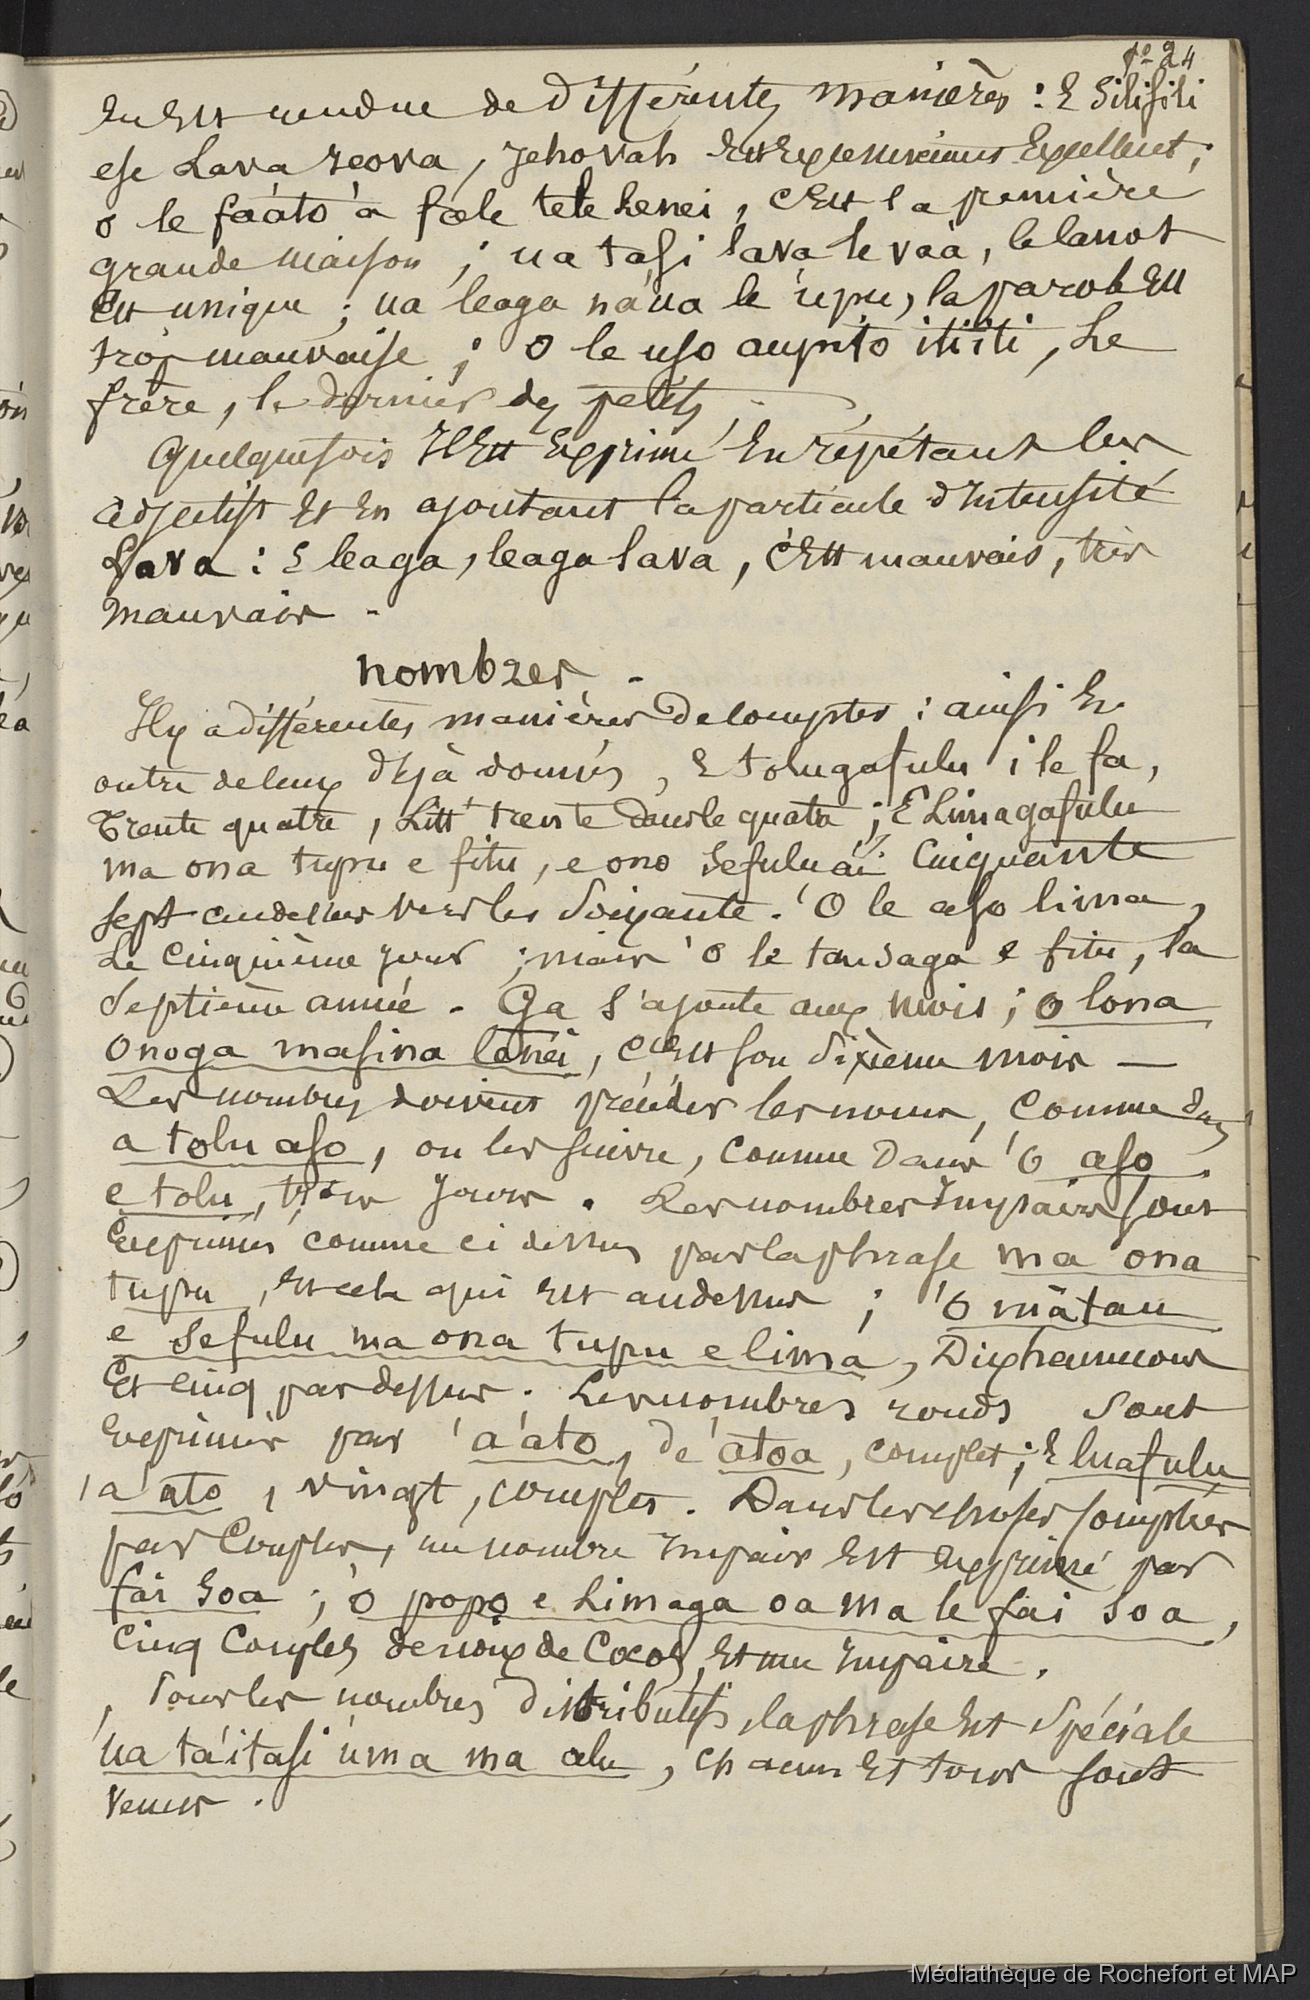 fo 24
en est rendue de différentes manières : E Silisili
ese Lava Ieova, Jehovah est Excellent ;
o le faáto á fale tele lenei, c'Est la première
grande maison ; ua tasi lava le vaà, le canot
Est unique ; ua leaga náua le úpu, la parole Est
trop mauvaise ; o le uso aupito itiiti, Le
frère, le dernier des petits.
Quelquefois Il Est Exprimé En répétant les
adjectifs Et En ajoutant la particule d'Intensité
Lava : E leaga, leaga lava, c'Est mauvais, très
mauvais.
nombres.
Il y a différentes manières de compter : ainsi En
outre de ceux déjà donnés, E tolugafulu i le fa,
Trente quatre, Litt.t trente dans le quatre ; E Limagafulu
ma ona tupu e fitu, e ono sefulu ái Cinquante
sept au dessus vers les Soixante. 'O le aso lima,
Le Cinquième jour ; mais 'o le tausaga e fitu, la
Septième année. Ga s'ajoute aux mois ; o lona
onoga masina lenei, c'Est son sixième mois —
Les nombres doivent précéder les noms, comme dans
a tolu aso, ou les suivre, comme dans 'o aso
e tolu, trois jours. Les nombres Impairs sont
Exprimés comme ci dessus par la phrase ma ona
tupu, Et cela qui Est au dessus ; 'o mātau
e sefulu ma ona tupu e lima, Dix hameçons
Et cinq par dessus. Les nombres ronds sont
Exprimés par 'a'ato, de 'atoa, complet ; E luafulu
'a'ato, vingt, complets. Dans les choses comptées
par Couples, un nombre Impair Est Exprimé par
fai soa ; 'o popo e Limaga oa ma le fai soa,
Cinq Couples de noix de Cocos, Et une Impaire.
Pour les nombres distributifs, la phrase Est Spéciale
ua ta'itasi úma ma alu, chacun Et tous sont
venus.
Médiathèque de Rochefort et MAP